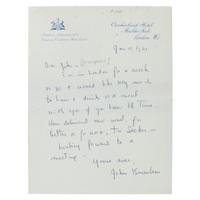 Cumberland Hotel
Marble Arch
London W1
Dear John
I am in London for a week
or so & would like very much
to have a drink or a meal
with you if you have the time.
Have delivered new novel, for
better or for worse, to Secker -
looking forward to a
meeting. Yours ever,
John